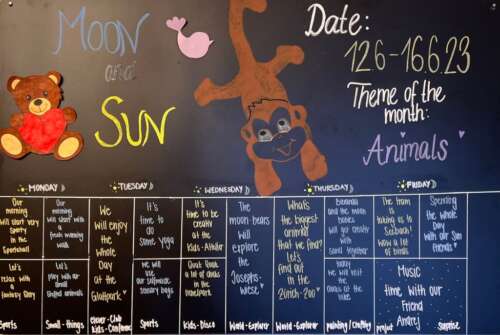 Moon
and
Sun
Date:
12.6-16.6.23
Theme of the
month:
Animals
MONDAY
TUESDAY
WEDNESDAY
THURSDAY
FRIDAY
Our
morning
will start very
sporty
in the
Sportshall
Our
morning
will start with
a fresh
morning
walk
We
will
enjoy
the
whole
Day
at the
Glattpark
It's
time to
do
some yoga
It's
time to
be creativ
at the
Kids-Atelier
The
moon-bears
will
explore
the
Josephs-
wiese
What's
the biggest
animal
that we find?
Let's
find out
in the
Zürich-Zoo
Banana
and the moon
babies
will get creativ
with
sand together
The tram
is
taking us to
Seebach!
Wow a lot
of birds
Spending
the whole
Day
with our Sun
friends
Let's
relax with
a
fantasy Story
Let's
play with our
small
stuffed animals
we
will
use
our selfmade
sensory bags
Quack Quack
a lot of ducks
in the
today
we will
visit
the
Music
time with our
Friend
Andrej
Sports
Small-things
Kids-Conference
Sports
Kids-Disco
World-Explorer
World-Explorer
project
Surprise